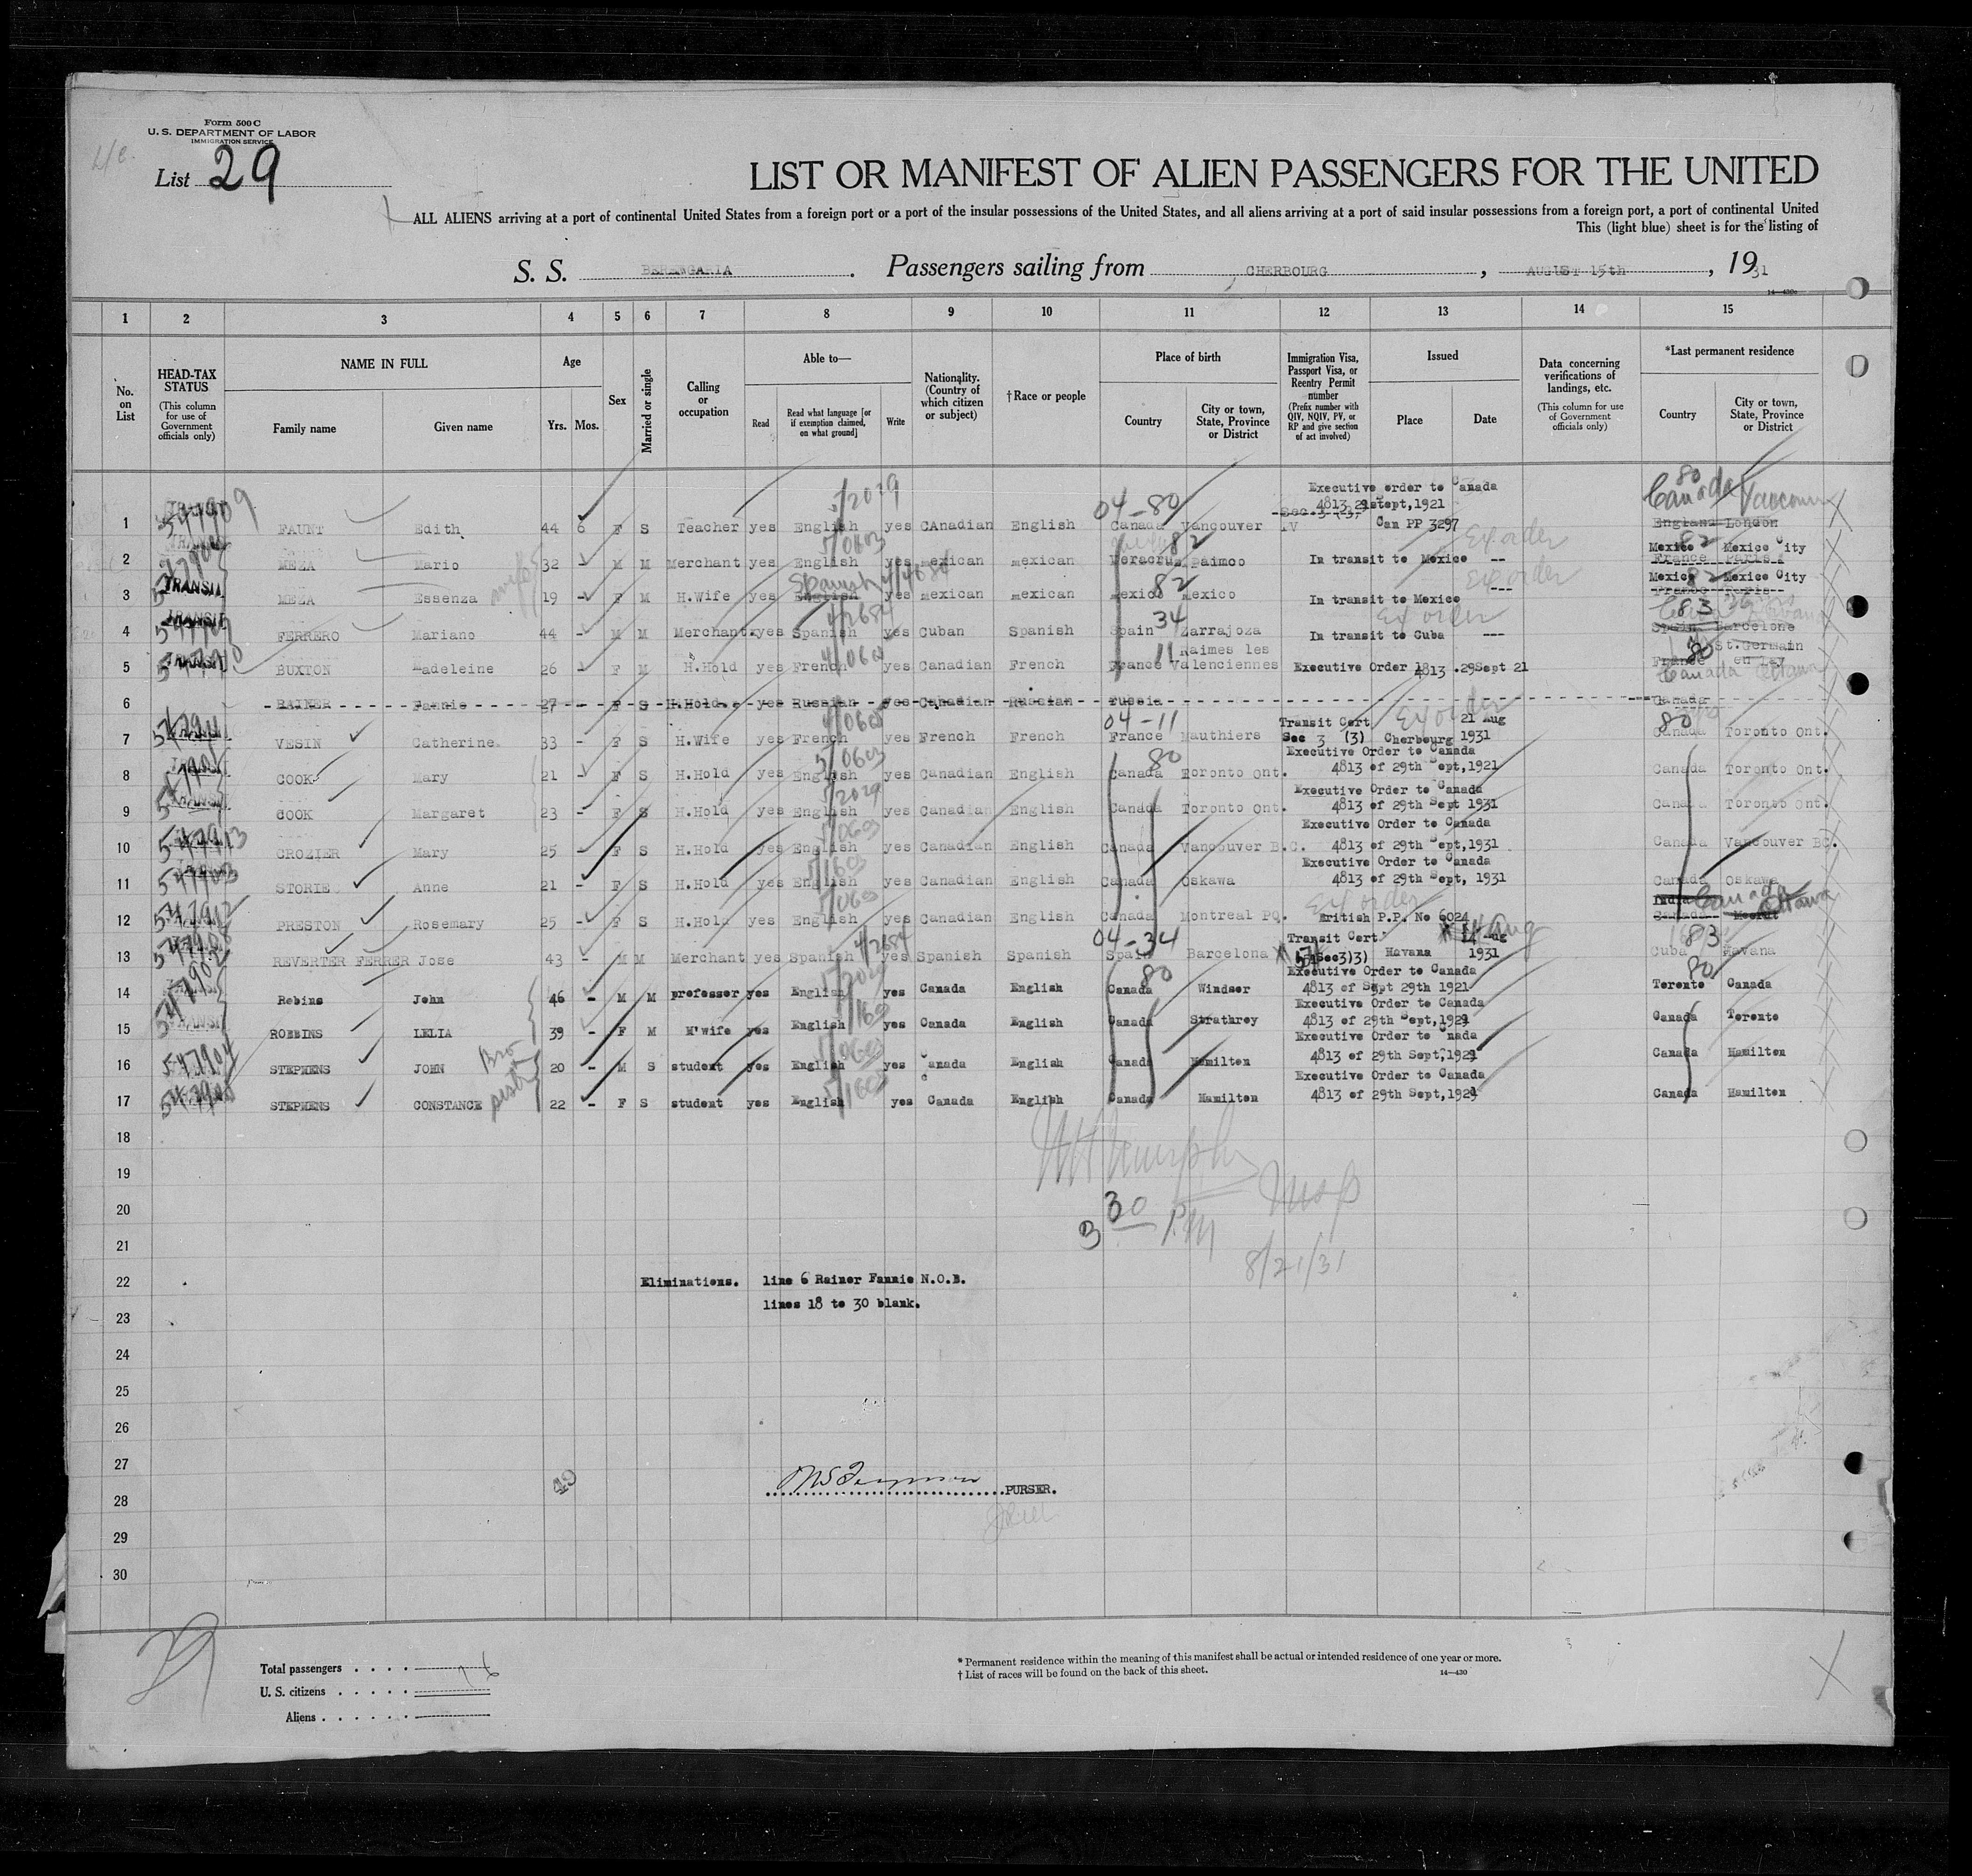 Form 500 C
U. S. DEPARTMENT OF LABOR
IMMIGRATION SERVICE
List 29
LIST OR MANIFEST OF ALIEN PASSENGERS FOR THE UNITED
ALL ALIENS arriving at a port of continental United States from a foreign port or a port of the insular possessions of the United States, and all aliens arriving at a port of said insular possessions from a foreign port, a port of continental United
This (light blue) sheet is for the listing of
S. S. BERENGARIA. Passengers sailing from CHERBOURG, AUGUST 15th, 1931
14—430
1 2 3 4 5 6 7 8 9 10 11 12 13 14 15
No. on List
HEAD-TAX STATUS (This column for use of Government officials only)
NAME IN FULL Family name Given name
Age Yrs. Mos.
Sex
Married or single
Calling or occupation
Able to— Read Read what language [or if exemption claimed, on what ground] Write
Nationality. (Country of which citizen or subject)
†Race or people
Place of birth Country City or town, State, Province or District
Immigration Visa, Passport Visa, or Reentry Permit number (Prefix number with QIV, NQIV, PV, or RP and give section of act involved)
Issued Place Date
Data concerning verifications of landings, etc. (This column for use of Government officials only)
*Last permanent residence Country City or town, State, Province or District
1 FAUNT Edith 44 6 F S Teacher yes English yes CAnadian English 04-80 Canada Vancouver Executive order to Canada 4813 29 sept, 1921 IV Can PP 3297 80 Canada Vancouver England London
2 MEZA Mario 32 - M M Merchant yes English yes mexican mexican 82 Veracruz Paimoo In transit to Mexico -- Ex order Mexico 82 Mexico City France Paris
3 TRANSIT MEZA Essenza wife 19 - F M H.Wife yes Spanish English yes mexican mexican 82 Mexico Mexico In transit to Mexico --- Ex order Mexico 82 Mexico City France Paris
4 FERRERO Mariano 44 - M M Merchant yes Spanish yes Cuban Spanish Spain 34 Zarrajoza In transit to Cuba --- Ex order 83 Spain Barcelone
5 BUXTON Madeleine 26 - F M H.Hold yes French yes Canadian French France 11 Raimes les Valenciennes Executive Order 1813 .29Sept 21 80 France St.Germain en Lay Canada Ottawa
6 RAINER Fannie 27 - F S H.Hold. yes Russian yes Canadian Russian russia Canada
7 VESIN Catherine 33 - F S H.Wife yes French yes French French 04-11 France Mauthiers Transit Cert Sec 3 (3) Cherbourg 21 Aug 1931 Ex order 80 Canada Toronto Ont.
8 COOK Mary 21 - F S H.Hold yes English yes Canadian English 80 Canada Toronto Ont. Executive Order to Canada 4813 of 29th Sept,1921 Canada Toronto Ont.
9 COOK Margaret 23 - F S H.Hold yes English yes Canadian English Canada Toronto Ont. Executive Order to Canada 4813 of 29th Sept 1931 Canada Toronto Ont.
10 CROZIER Mary 25 - F S H.Hold yes English yes Canadian English Canada Vancouver B.C. Executive Order to Canada 4813 of 29th Sept,1931 Canada Vancouver BC.
11 STORIE Anne 21 - F S H.Hold yes English yes Canadian English Canada Oskawa Executive Order to Canada 4813 of 29th Sept, 1931 Canada Oskawa
12 PRESTON Rosemary 25 - F S H.Hold yes English yes Canadian English Canada Montreal PQ. Ex order British P.P. No 6024 India Canada Meerut Canada Ottawa
13 REVERTER FERRER Jose 43 - M M Merchant yes Spanish yes Spanish Spanish 04-34 Spain Barcelona Transit Cert Sec3)3) Havana 14 Aug 1931 83 Cuba Havana
14 Robins John 46 - M M professor yes English yes Canada English 80 Canada Windsor Executive Order to Canada 4813 of Sept 29th 1921 80 Toronto Canada
15 ROBBINS LELIA 39 - F M H'wife yes English yes Canada English Canada Strathroy Executive Order to Canada 4813 of 29th Sept,1921 Canada Toronto
16 STEPHENS JOHN Bro 20 - M S student yes English yes Canada English Canada Hamilton Executive Order to Canada 4813 of 29th Sept,1921 Canada Hamilton
17 STEPHENS CONSTANCE sister 22 - F S student yes English yes Canada English Canada Hamilton Executive Order to Canada 4813 of 29th Sept,1921 Canada Hamilton
18
19
20
3 30 P.M
21
8/21/31
22 Eliminations. line 6 Rainer Fannie N.O.B.
lines 18 to 30 blank.
23
24
25
26
27
28 PURSER.
29
30
29
Total passengers . . . . 16
U. S. citizens . . . . .
Aliens . . . . . .
* Permanent residence within the meaning of this manifest shall be actual or intended residence of one year or more.
† List of races will be found on the back of this sheet.
14—430